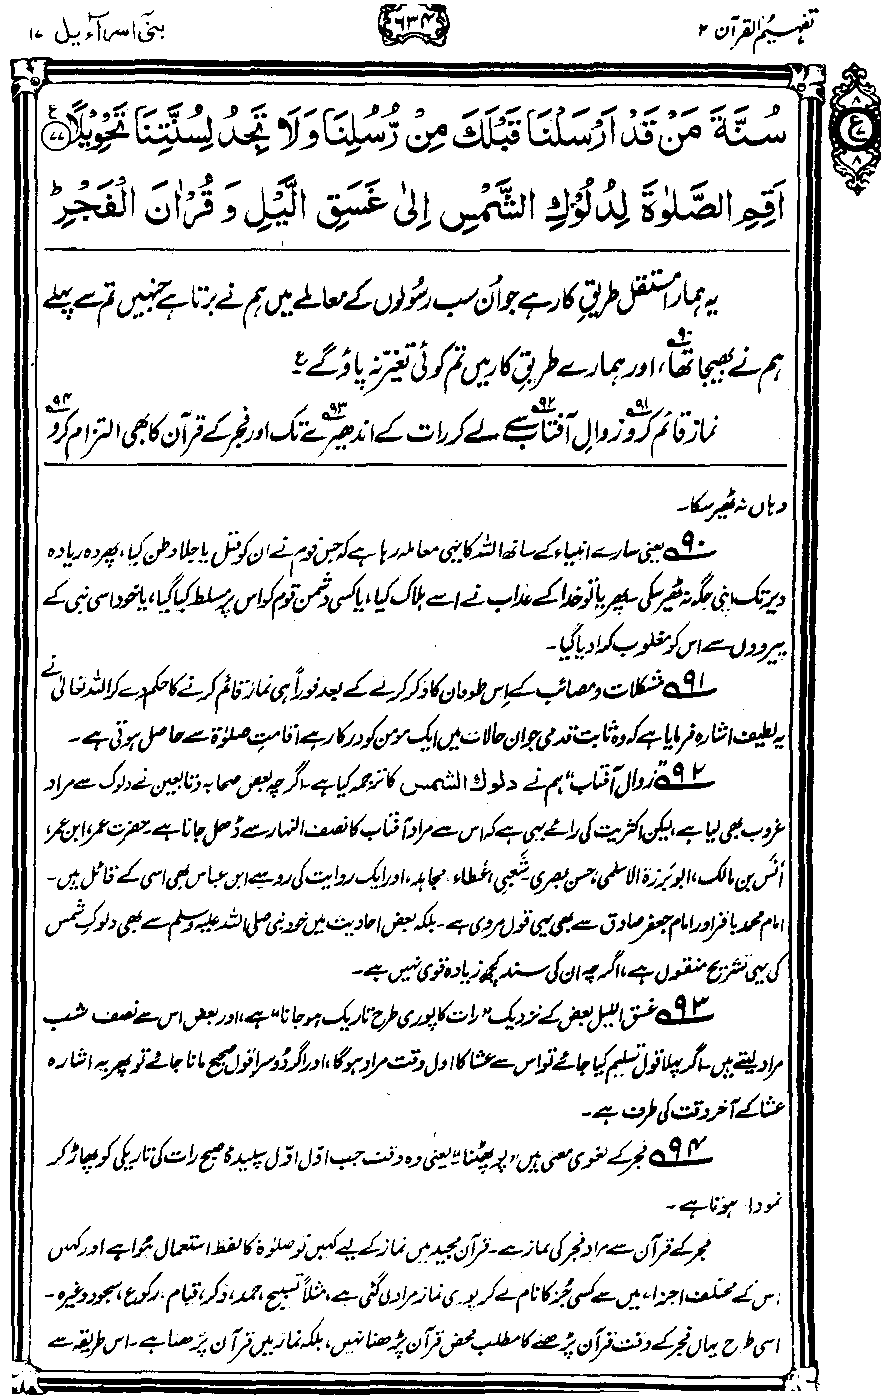 تفہیم القرآن ۲
۶۳۴
بنیٓ اسرآءیل ۱۷
سُنَّةَ مَنْ قَدْ اَرْسَلْنَا قَبْلَكَ مِنْ رُّسُلِنَا وَلَا تَجِدُ لِسُنَّتِنَا تَحْوِيْلًا ۷۷ ع
۸
ع
۷
۸
اَقِمِ الصَّلٰوةَ لِدُلُوْكِ الشَّمْسِ اِلٰى غَسَقِ الَّيْلِ وَ قُرْاٰنَ الْفَجْرِ ط
یہ ہمارا مستقل طریقِ کار ہے جو اُن سب رسولوں کے معاملے میں ہم نے برتا ہے جنہیں تم سے پہلے
ہم نے بھیجا تھا۹۰، اور ہمارے طریقِ کار میں تم کوئی تغیّر نہ پاؤ گے۔ ع
نماز قائم کرو۹۱ زوالِ آفتاب۹۲ سے لے کر رات کے اندھیرے۹۳ تک اور فجر کے قرآن کا بھی التزام کرو۹۴
وہاں نہ ٹھیر سکا۔
۹۰ یعنی سارے انبیاء کے ساتھ اللہ کا یہی معاملہ رہا ہے کہ جس قوم نے ان کو قتل یا جلا وطن کیا، پھر وہ زیادہ
دیر تک اپنی جگہ نہ ٹھیر سکی۔ پھر یا تو خدا کے عذاب نے اسے ہلاک کیا، یا کسی دشمن قوم کو اس پر مسلط کیا گیا، یا خود اسی نبی کے
پیرووں سے اس کو مغلوب کرا دیا گیا۔
۹۱ مشکلات و مصائب کے اِس طوفان کا ذکر کرنے کے بعد فوراً ہی نماز قائم کرنے کا حکم دے کر اللہ تعالیٰ نے
یہ لطیف اشارہ فرمایا ہے کہ وہ ثابت قدمی جو ان حالات میں ایک مومن کو درکار ہے اقامتِ صلوٰۃ سے حاصل ہوتی ہے۔
۹۲ ”زوالِ آفتاب“ ہم نے دلوك الشمس کا ترجمہ کیا ہے۔ اگرچہ بعض صحابہ و تابعین نے دلوک سے مراد
غروب بھی لیا ہے، لیکن اکثریت کی رائے یہی ہے کہ اس سے مراد آفتاب کا نصف النہار سے ڈھل جانا ہے۔ حضرت عمر، ابن عمر،
انَس بن مالک، ابو بَرزۃ الاسلمی، حسن بصری، شعبی، عطاء، مجاہد، اور ایک روایت کی رو سے ابن عباس بھی اسی کے قائل ہیں۔
امام محمد باقر اور امام جعفر صادق سے بھی یہی قول مروی ہے۔ بلکہ بعض احادیث میں خود نبی صلی اللہ علیہ وسلم سے بھی دلوکِ شمس
کی یہی تشریح منقول ہے، اگرچہ ان کی سند کچھ زیادہ قوی نہیں ہے۔
۹۳ غسق اللیل بعض کے نزدیک ”رات کا پوری طرح تاریک ہو جانا“ ہے، اور بعض اس سے نصف شب
مراد لیتے ہیں۔ اگر پہلا قول تسلیم کیا جائے تو اس سے عشا کا اول وقت مراد ہوگا، اور اگر دُوسرا قول صحیح مانا جائے تو پھر یہ اشارہ
عشا کے آخر وقت کی طرف ہے۔
۹۴ فجر کے لغوی معنی ہیں ”پو پھٹنا“ یعنی وہ وقت جب اوّل اوّل سپیدۂ صبح رات کی تاریکی کو پھاڑ کر
نمودار ہوتا ہے۔
فجر کے قرآن سے مراد فجر کی نماز ہے۔ قرآن مجید میں نماز کے لیے کہیں تو صلوٰۃ کا لفظ استعمال ہُوا ہے اور کہیں
اس کے مختلف اجزاء میں سے کسی جُز کا نام لے کر پوری نماز مراد لی گئی ہے، مثلاً تسبیح، حمد، ذکر، قیام، رکوع، سجود وغیرہ۔
اسی طرح یہاں فجر کے وقت قرآن پڑھنے کا مطلب محض قرآن پڑھنا نہیں، بلکہ نماز میں قرآن پڑھنا ہے۔ اس طریقہ سے